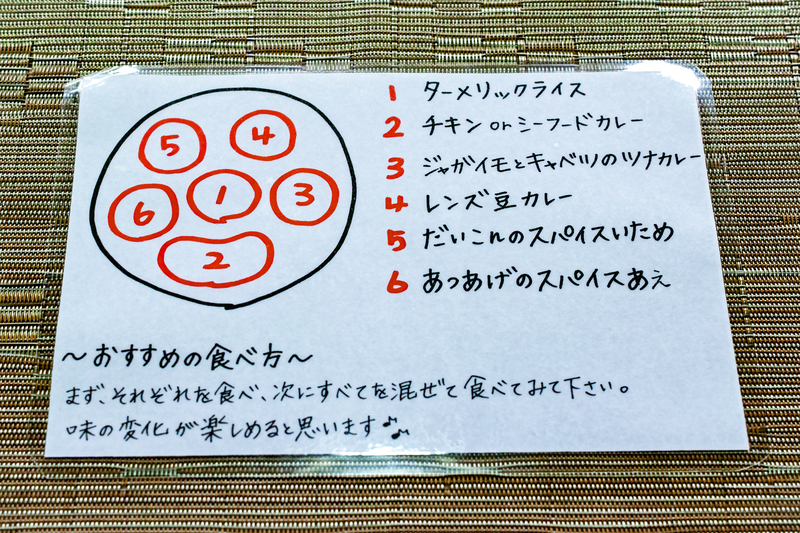 5 4
6 1 3
2
1 ターメリックライス
2 チキン or シーフードカレー
3 ジャガイモとキャベツのツナカレー
4 レンズ豆カレー
5 だいこんのスパイスいため
6 あつあげのスパイスあえ
～おすすめの食べ方～
まず、それぞれを食べ、次にすべてを混ぜて食べてみて下さい。
味の変化が楽しめると思います♪♪